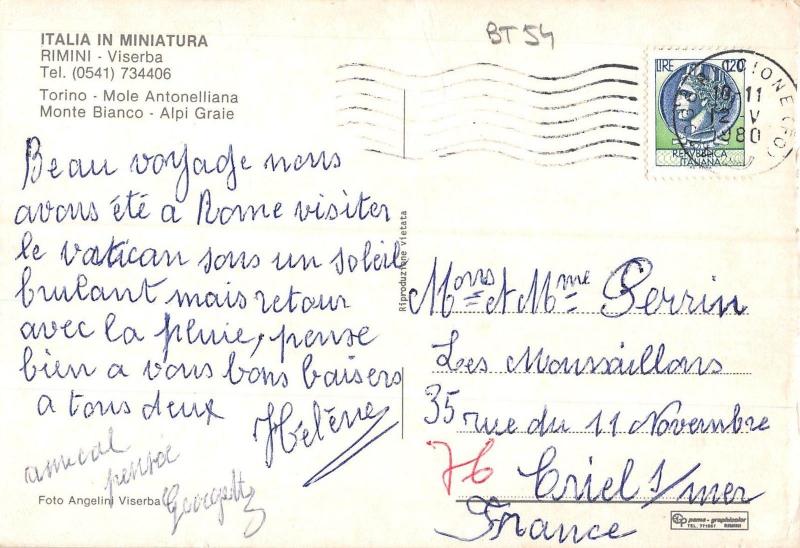 BT 54
ITALIA IN MINIATURA
RIMINI - Viserba
Tel. (0541) 734406
Torino - Mole Antonelliana
Monte Bianco - Alpi Graie
Beau voyage nous
avons été a Rome visiter
le vatican sous un soleil
brulant mais retour
avec la pluie, pense
bien a vous bons baisers
a tous deux
Hélène
amical
pensée
Georgette
Foto Angelini Viserba
Riproduzione Vietata
LIRE 120
REPVBBLICA
ITALIANA
CIONE (FO)
10-11
12-V
1980
Mons et Mme Perrin
Les Moussaillons
35 rue du 11 Novembre
76 Criel s/mer
France
pama-graphicolor
TEL. 771057 RIMINI